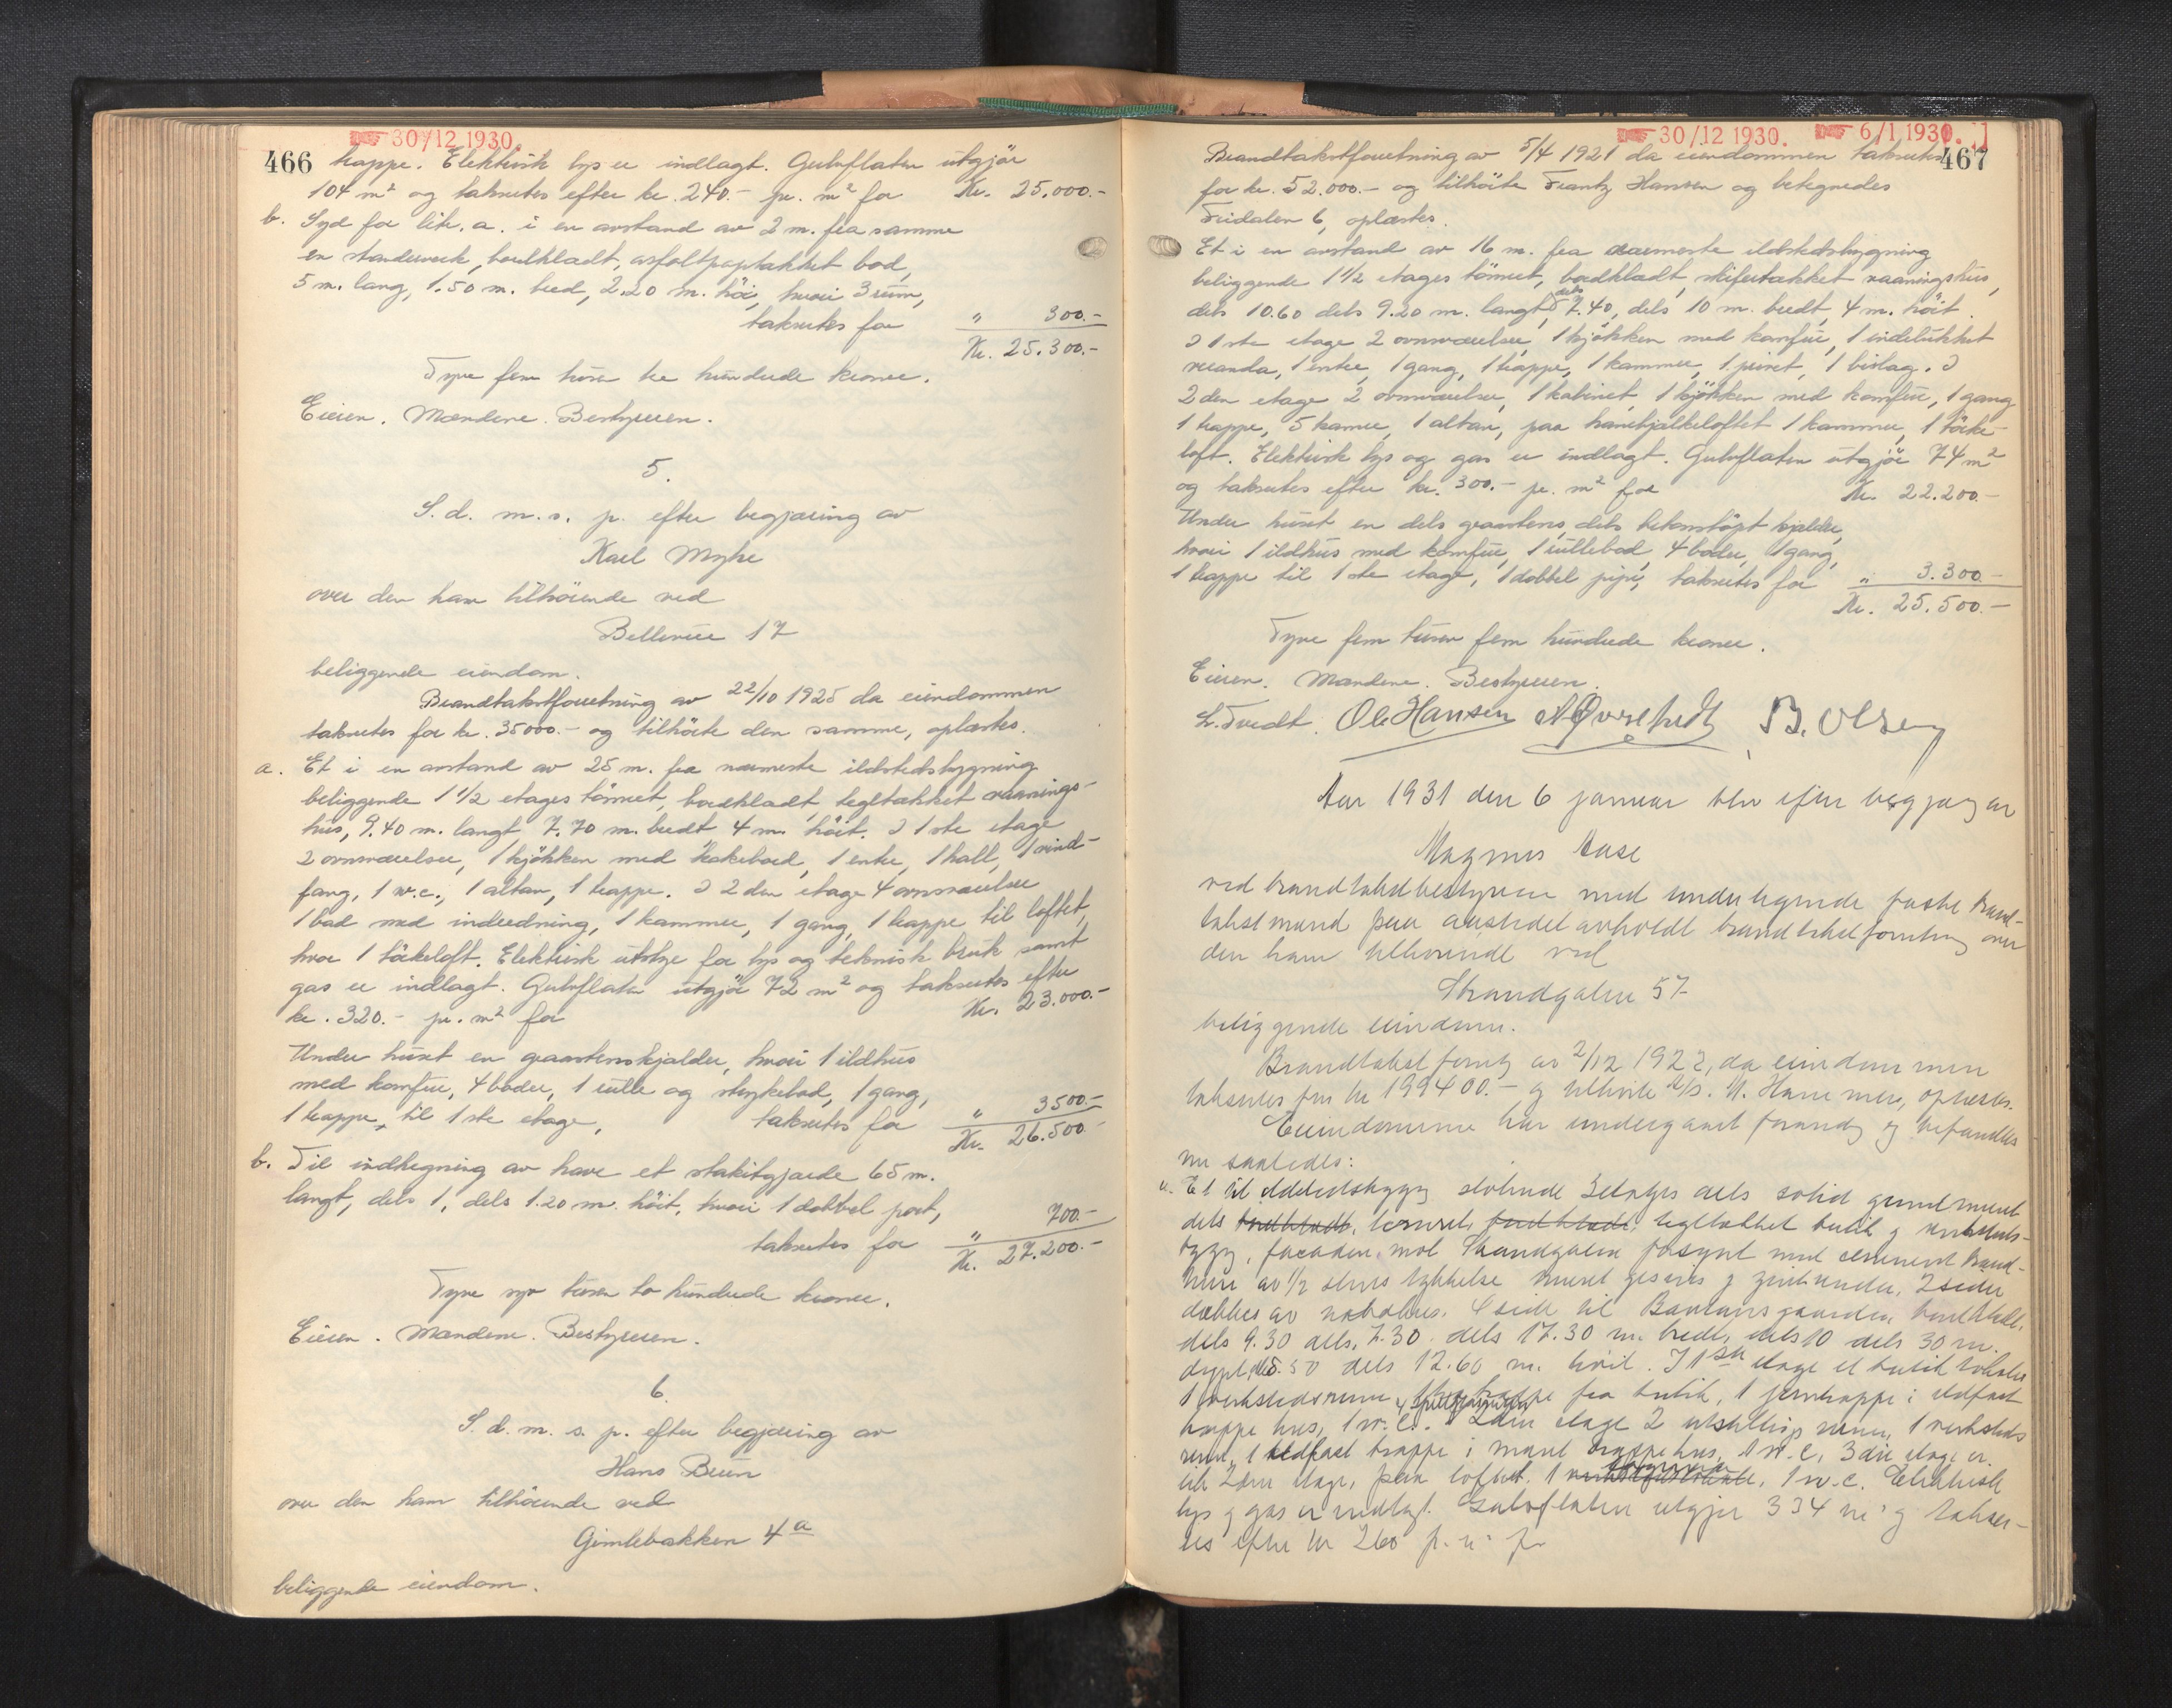 30/12 1930.
466 trappe. Elektrisk lys er indlagt. Gulvflaten utgjör
104 m² og takseres efter kr. 240.- pr. m² for Kr. 25,000.-
b. Syd for litr. a. i en avstand av 2 m. fra samme
en standerverk, bordklædt, asfaltpaptækket bod,
5 m. lang, 1.50 m. bred, 2.20 m. höi, hvori 3 rum,
takseres for " 300.-
Kr. 25.300.-
Tyve fem tusen tre hundrede kroner.
Eieren. Mændene. Bestyreren.
5.
S. d. m. s. p. efter begjæring av
Karl Myhre
over den ham tilhörende ved
Bellevue 17
beliggende eiendom.
Brandtakstforretning av 22/10 1925 da eiendommen
takseres for kr. 35000.- og tilhörte den samme, oplæstes.
a. Et i en avstand av 25 m. fra nærmeste ildstedsbygning
beliggende 1 1/2 etages tömret, bordklædt, tegltækket vaanings-
hus, 9.40 m. langt 7.70 m. bredt 4 m. höit. I 1ste etage
2 ovnsværelser, 1 kjökken med kokebord, 1 entre, 1 hall, 1 vind-
fang, 1 w.c., 1 altan, 1 trappe. I 2den etage 4 ovnsværelser
1 bad med indredning, 1 kammer, 1 gang, 1 trappe til loftet,
hvor 1 törkeloft. Elektrisk utstyr for lys og teknisk bruk samt
gas er indlagt. Gulvflaten utgjör 72 m² og takseres efter
kr. 320.- pr. m² for Kr. 23.000.-
Under huset en graastenskjælder, hvori 1 ildhus
med komfur, 4 boder, 1 rulle og strykebod, 1 gang,
1 trappe til 1ste etage, takseres for " 3500.-
Kr. 26.500.-
b. Til indhegning av have et stakitgjærde 65 m.
langt, dels 1, dels 1.20 m. höit, hvori 1 dobbel port,
takseres for " 700.-
Kr. 27.200.-
Tyve syv tusen to hundrede kroner.
Eieren. Mændene. Bestyreren.
6.
S. d. m. s. p. efter begjæring av
Hans Brun
over den ham tilhörende ved
Gimlebakken 4 a
beliggende eiendom.
30/12 1930. 6/1 1931.
467
Brandtakstforretning av 5/4 1921 da eiendommen takseres
for kr. 52.000.- og tilhörte Frantz Hansen og betegnedes
Fridalen 6, oplæstes.
Et i en avstand av 16 m. fra nærmeste ildstedsbygning
beliggende 1 1/2 etages tömret, bordklædt, skifertækket vaaningshus,
dels 10.60 dels 9.20 m. langt, dels 7.40, dels 10 m. bredt, 4 m. höit.
I 1ste etage 2 ovnsværelser, 1 kjökken med komfur, 1 indelukket
veranda, 1 entre, 1 gang, 1 trappe, 1 kammer, 1 privet, 1 bislag. I
2den etage 2 ovnsværelser, 1 kabinet, 1 kjökken med komfur, 1 gang
1 trappe, 5 kamre, 1 altan, paa hanebjælkeloftet 1 kammer, 1 törke-
loft. Elektrisk lys og gas er indlagt. Gulvflaten utgjör 74 m²
og takseres efter kr. 300.- pr. m² for Kr. 22.200.-
Under huset en dels graastens, dels betonstöpt kjælder,
hvori 1 ildhus med komfur, 1 rullebod, 4 boder, 1 gang,
1 trappe til 1ste etage, 1 dobbel pipe, takseres for " 3.300.-
Kr. 25.500.-
Tyve fem tusen fem hundrede kroner.
Eieren. Mændene. Bestyreren.
L. Tvedt. Ole Hansen B. Olsen
Aar 1931 den 6 januar blev efter begjæring av
Magnus Aase
ved brandtakstbestyreren med undertegnede faste brand-
takstmænd paa aastedet avholdt brandtakstforretning over
den ham tilhørende ved
Strandgaten 57
beliggende eiendom.
Brandtakstforretn av 2/12 1922, da eiendommen
takseres for kr 199400.- og tilhørte A/S. M. Hammer, oplæstes.
Eiendommen har undergaaet forandr og befandtes
nu saaledes:
a. Et til ildstedsbygg stötende 3 etages dels solid grundmuret
dels bordklædt, tømret, bordklædt, tegltækket butik og verksteds-
bygg, facaden mot Strandgaten forsynt med cementert brand-
mur av 1/2 stens tykkelse muret gesims og 2 sider
dækkes av nabohus. 4 side til bordklædt.
dels 9.30 dels 7.30 dels 17.30 m. bredt, dels 10 dels 30 m.
dypt, dels 5.50 dels 12.60 m. höit. I 1ste etage et butiklokale
1 verkstedsrum, trappe fra butik, 1 jerntrappe i ildfast
trappehus, 1 w.c. 2den etage 2 utstillingsrum, 1 verksteds
rum, 1 ildfast trappe i muret trappehus, 1 w.c. 3die etage er
lik 2den etage, paa loftet 1 1 w.c. Elektrisk
lys og gas er indlagt. Gulvflaten utgjør 334 m² og takser-
es efter kr 260 pr. m² for